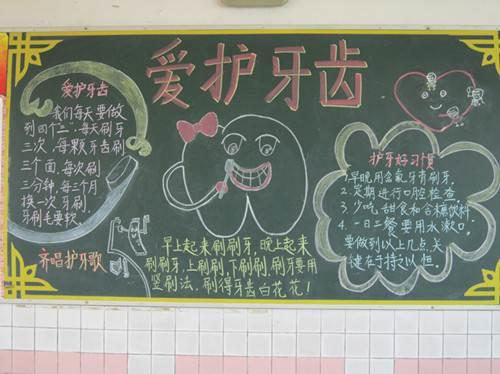 爱护牙齿
爱护牙齿
我们每天要做
到四个"三",每天刷牙
三次,每颗牙齿刷
三个面,每次刷
三分钟,每三个月
换一次牙刷,
牙刷毛要软。
齐唱护牙歌
早上起来刷刷牙,晚上起来
刷刷牙,上刷刷,下刷刷,刷牙要用
竖刷法,刷得牙齿白花花!
护牙好习惯
1.早晚用含氟牙膏刷牙。
2.定期进行口腔检查
3.少吃甜食和含糖饮料
4.一日三餐要用水漱口。
要做到以上几点,关
键在于持之以恒。